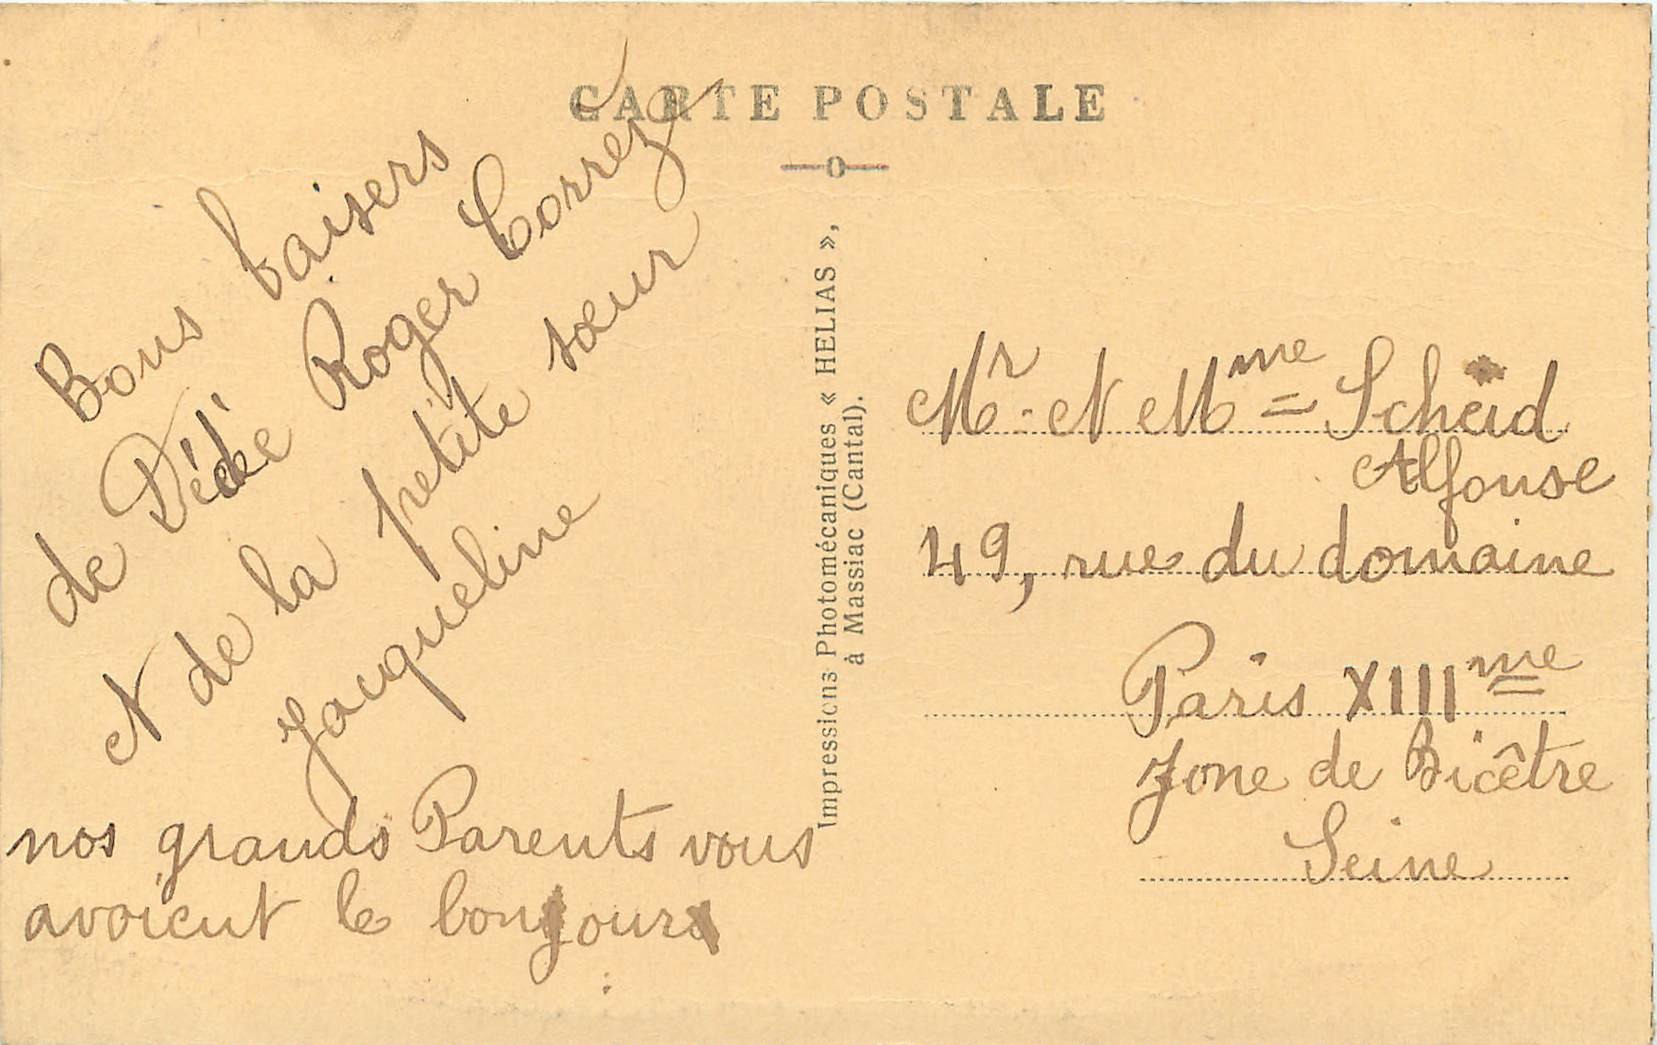 CARTE POSTALE
Bons baisers
de Dédée Roger Corrèze
et de la petite sœur
Jacqueline
nos grands Parents vous
avoient le bonjour
Impressions Photomécaniques « HELIAS »,
à Massiac (Cantal).
Mr et Mme Scheid
Alfonse
49, rue du domaine
Paris XIIIme
Zone de Bicêtre
Seine